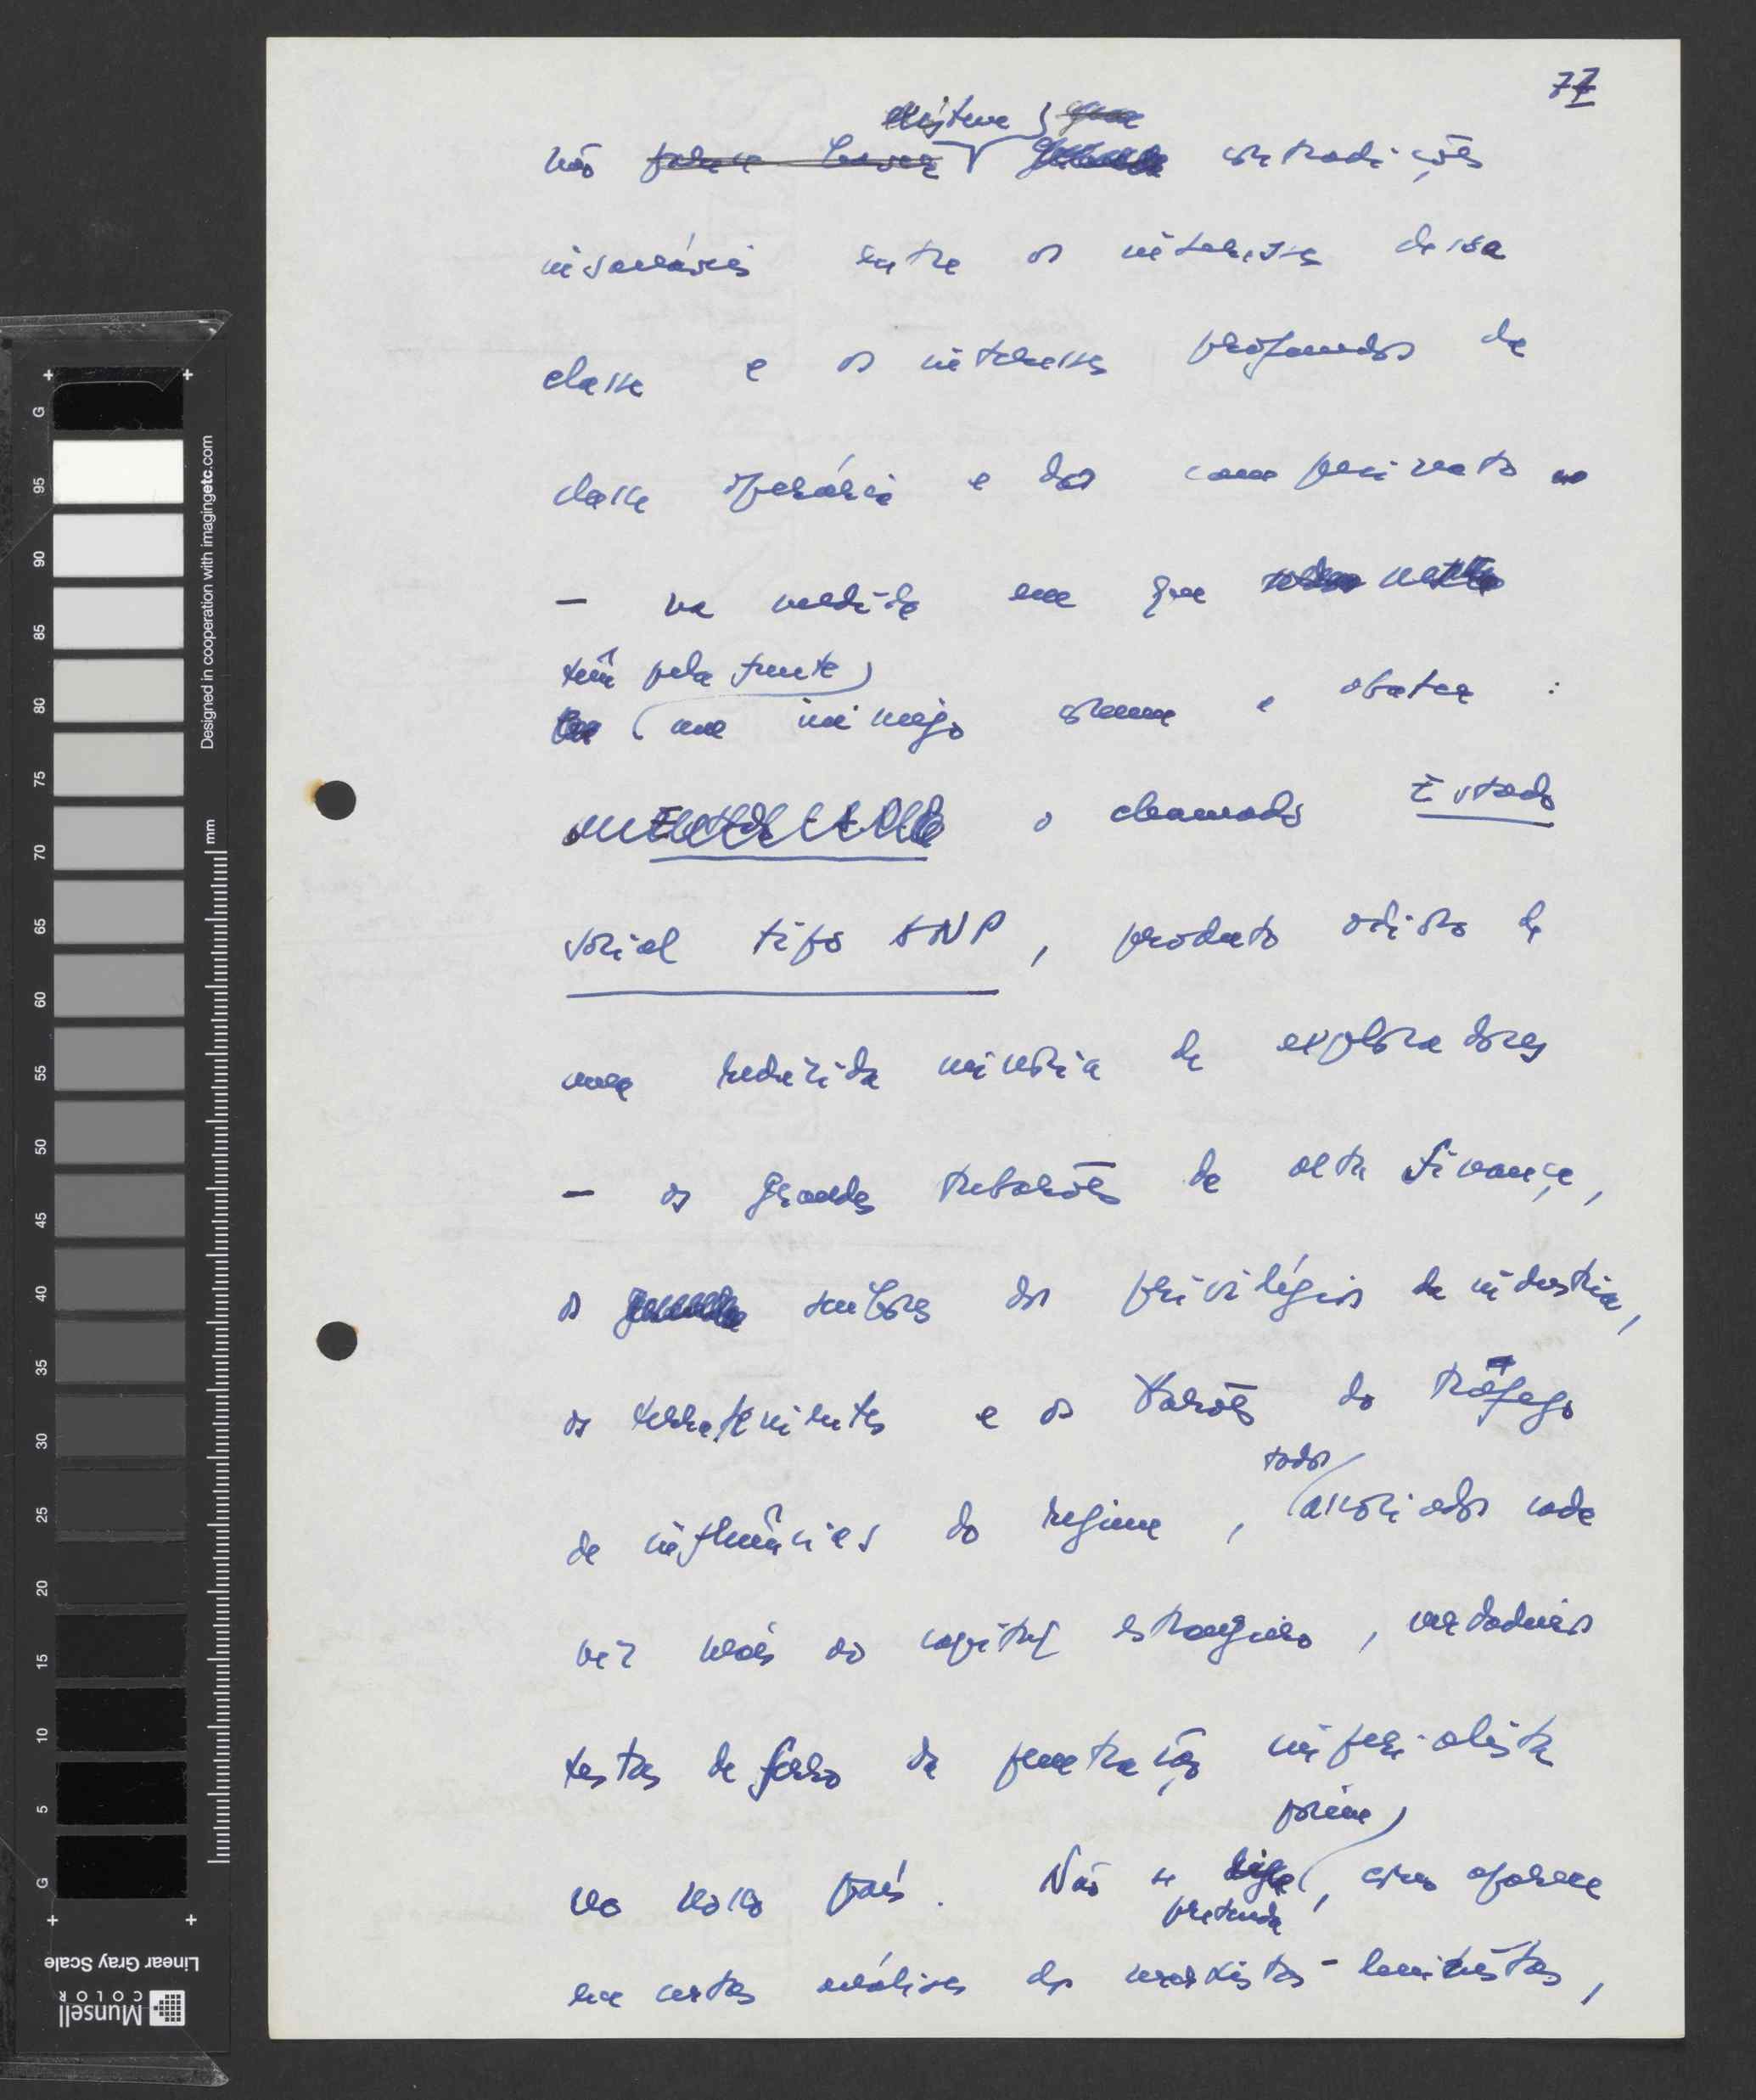 77
existem
não parece haver contradições
insanáveis entre os interesses dessa
classe e os interesses profundos da
classe operária e dos campesinato
— na medida em que
têm pela frente
um inimigo comum a abater :
o chamado Estado
social tipo ANP, produto odioso de
uma reduzida minoria de exploradores
— os grandes tubarões da alta finança,
os senhores dos privilégios da indústria,
os terratenentes e os barões do tráfego
todos
de influências do regime, associados cada
vez mais ao capital estrangeiro, verdadeiros
testas de ferro da penetração imperialista
porém
no nosso país. Não se , como aparece
pretenda
em certas análises de marxistas-leninistas,
G 95 90 85 80 75 70 65 60 55 50 45 40 35 30 25 20 15 10 5 G
Designed in cooperation with imagingetc.com
mm
Linear Gray Scale
Munsell
COLOR